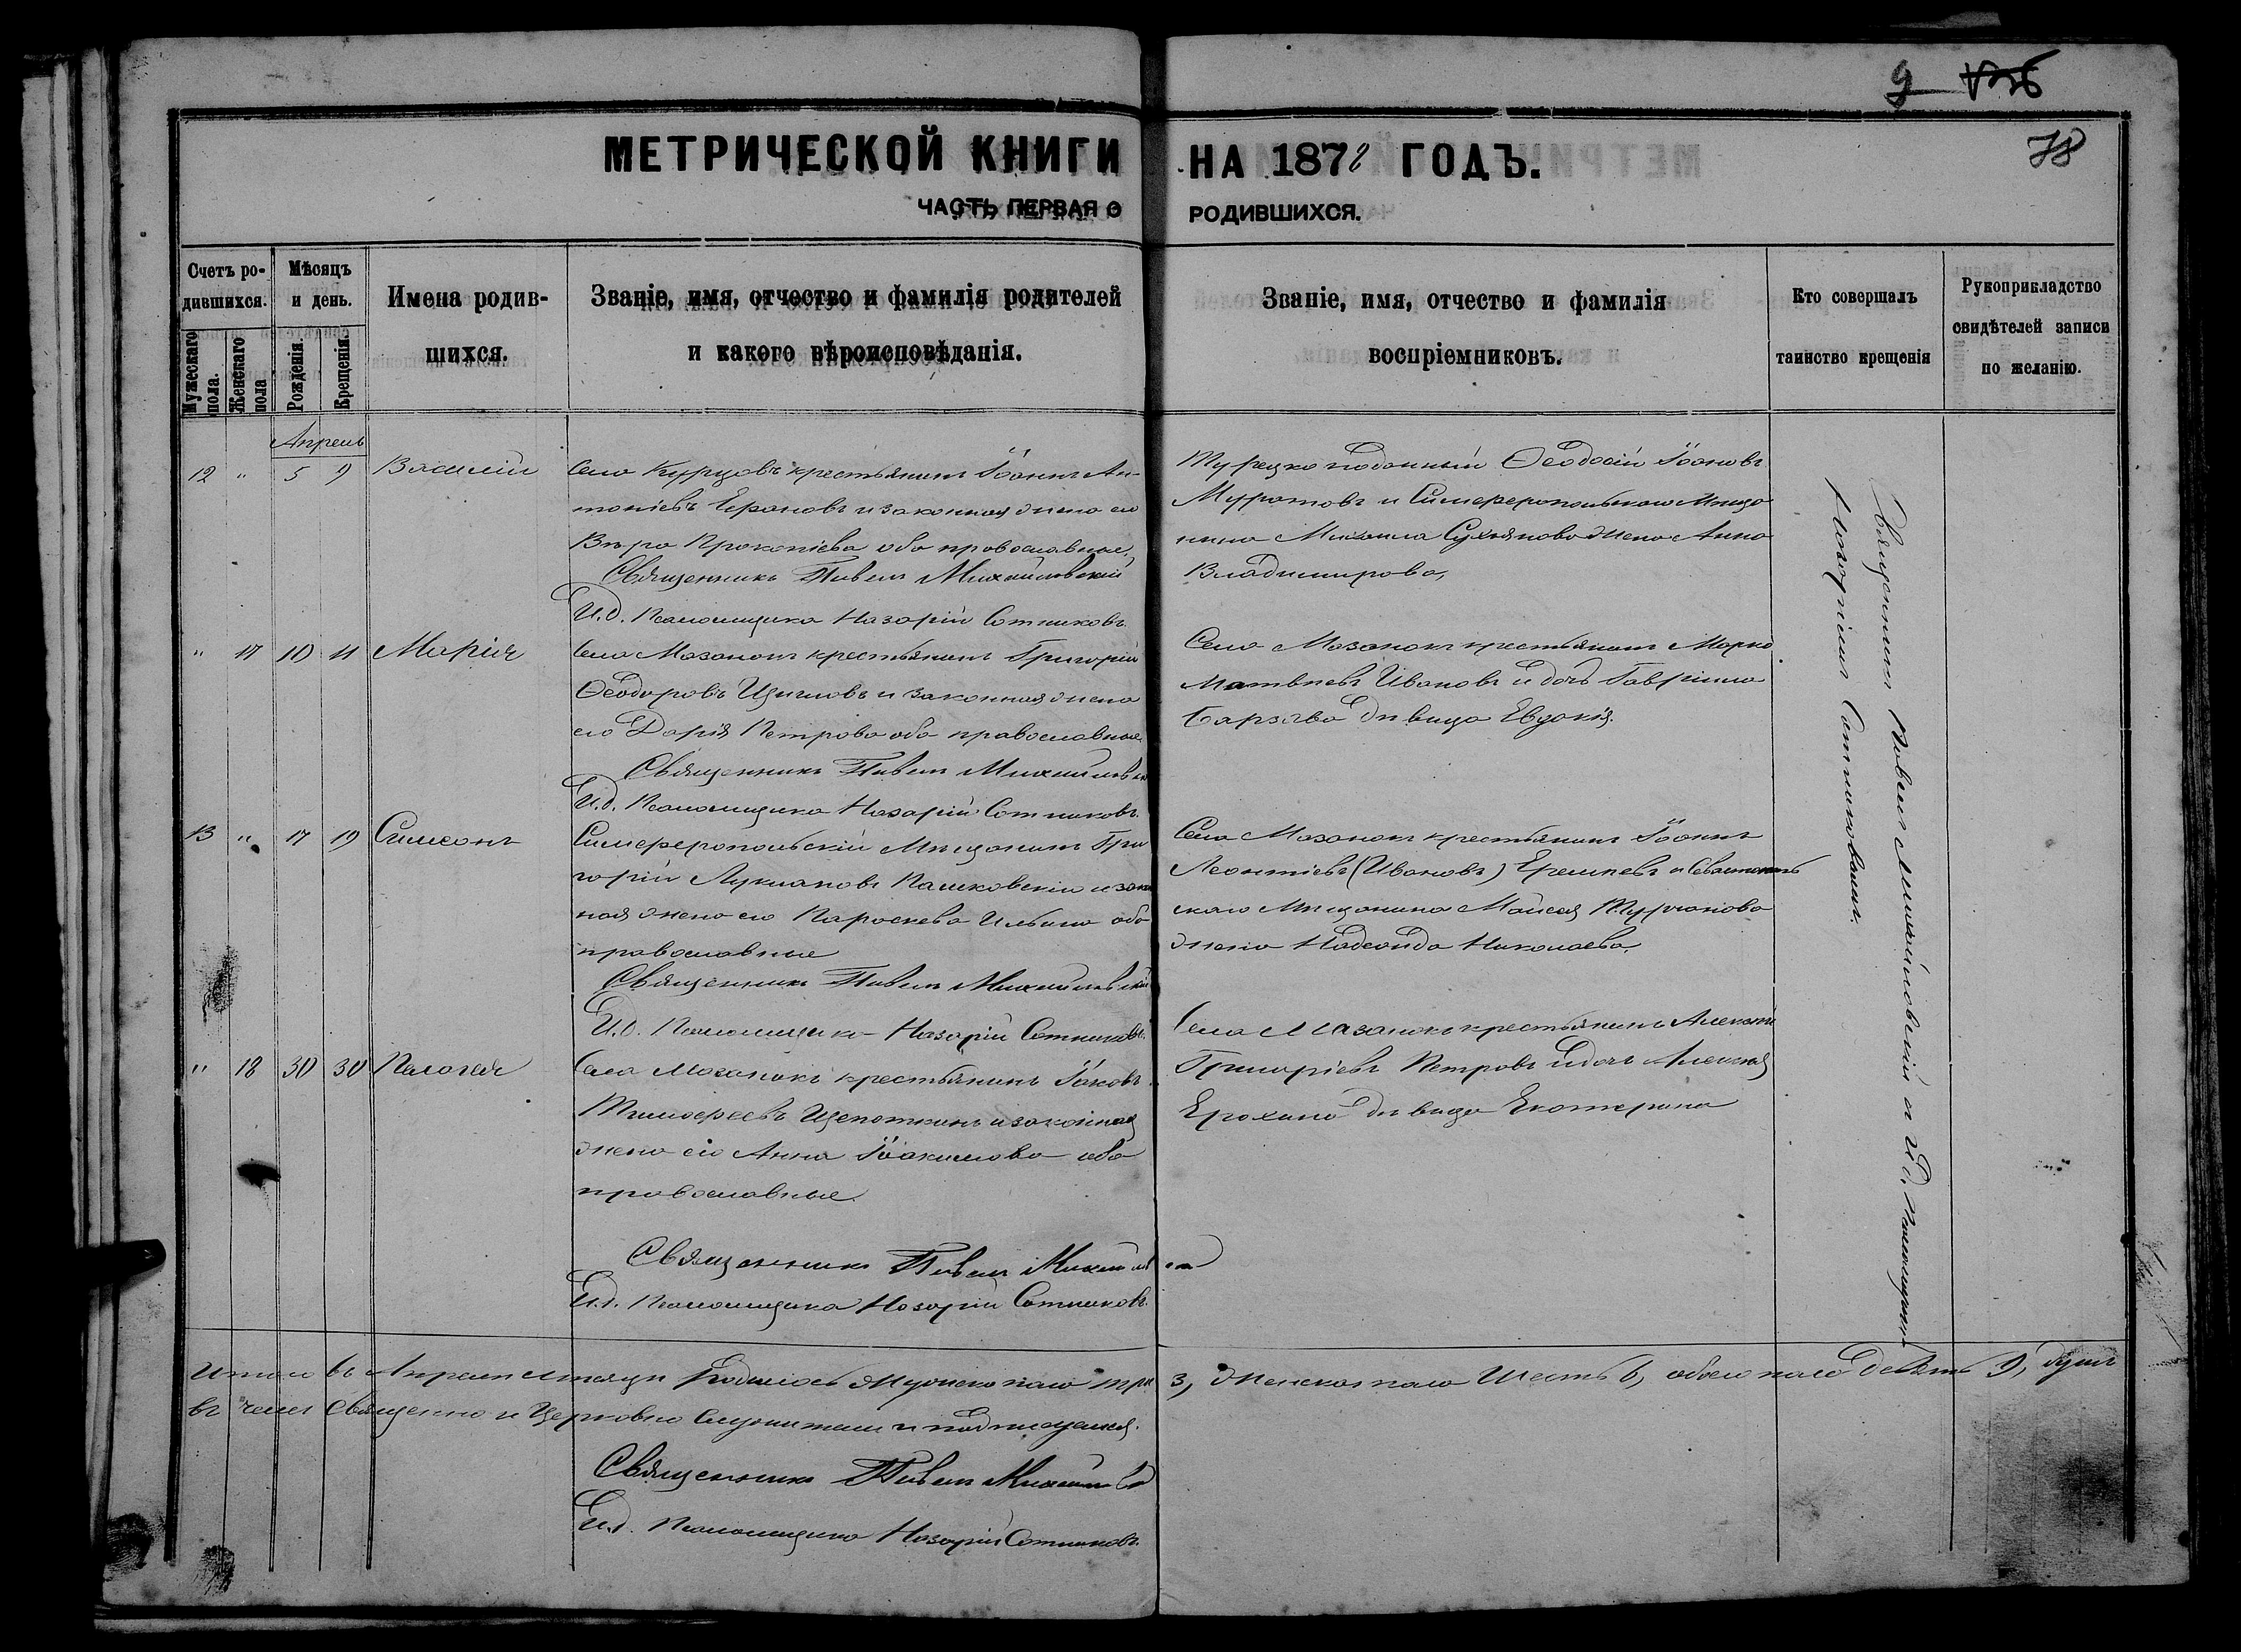 9
78
МЕТРИЧЕСКОЙ КНИГИ НА 1878 ГОДЪ.
ЧАСТЬ ПЕРВАЯ О РОДИВШИХСЯ.
Счетъ родившихся.
Мужескаго пола.
Женскаго пола
Мѣсяцъ и день.
Рожденія.
Крещенія.
Имена родившихся.
Званіе, имя, отчество и фамилія родителей
и какого вѣроисповѣданія.
Званіе, имя, отчество и фамилія
воспріемниковъ.
Кто совершалъ
таинство крещенія
Рукоприкладство
свидѣтелей записи
по желанію.
Апрель
12 " 5 9 Василій
Села Курцовъ крестьянинъ Іоаннъ Ан-
тоніевъ и законная жена его
Вѣра Прокопіева оба православные,
Священникъ Павелъ Михайловскій
И.д. Псаломщика Назарій Сотниковъ
Турецко подданный Ѳеодосій Іоановъ
Муратовъ и Симферопольскаго Мѣща
нина Михаила жена Анна
Владимирова,
" 17 10 11 Марія
Села Мазанокъ крестьянинъ Григорій
Ѳеодоровъ и законная жена
его Дарія Петрова оба православные.
Священникъ Павелъ Михайловскій
И.д. Псаломщика Назарій Сотниковъ.
Села Мазанокъ крестьянинъ Марко
Матвѣевъ Ивановъ и дочь Гавріила
дѣвица Евдокія.
13 " 17 19 Симеонъ
Симферопольскій Мѣщанинъ Гри
горій Лукіановъ Пашковскій и закон
ная жена его Параскева Ильина оба
православные
Священникъ Павелъ Михайловскій
И.д. Псаломщика Назарій Сотниковъ.
Села Мазанокъ крестьянинъ Іоаннъ
Леонтіевъ (Ивановъ) и Севастополь
скаго Мѣщанина Моисея
жена Надежда Николаева.
" 18 30 30 Пелагея
Села Мазанокъ крестьянинъ Іаковъ
Тимофеевъ Щепоткинъ и законная
жена его Анна Іоакимова оба
православные.
Священникъ Павелъ Михайловскій
И.д. Псаломщика Назарій Сотниковъ.
Села Мазанокъ крестьянинъ Алексѣй
Григоріевъ Петровъ и дочь Алексѣя
Ерохина дѣвица Екатерина
Священникъ Павелъ Михайловскій и И.д. Псаломщика
Назаріемъ Сотниковымъ.
Итого въ Апрелѣ мѣсяцѣ родилось Мужеска пола три 3, Женскаго пола Шесть 6, обоего пола Девять 9, душъ
въ чемъ Священно и Церковно Служители и подписуемся.
Священникъ Павелъ Михайловскій
И.д. Псаломщика Назарій Сотниковъ.